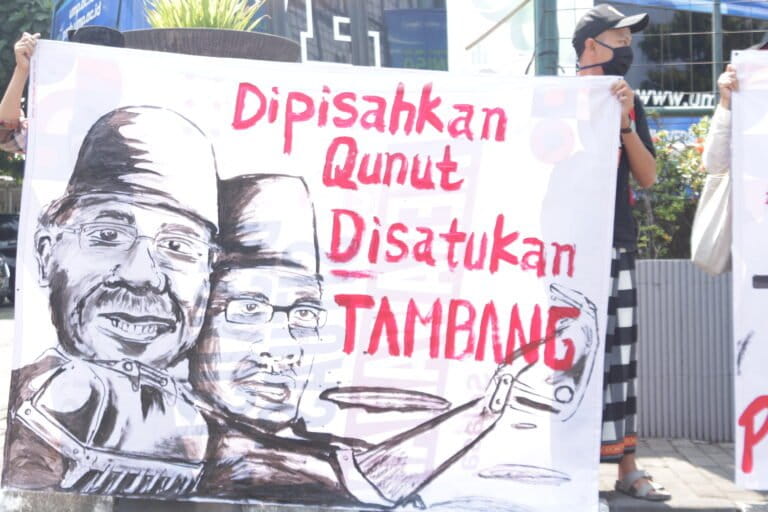 Dipisahkan
Qunut
Disatukan
TAMBANG
www.um
P